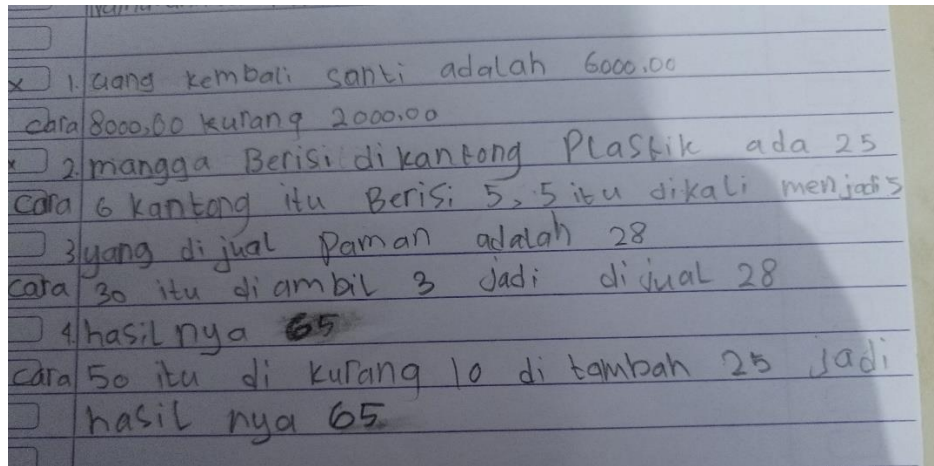 x 1. uang kembali santi adalah 6000.00
cara 8000,00 kurang 2000,00
x 2. mangga Berisi di kantong Plastik ada 25
cara 6 kantong itu Berisi 5, 5 itu dikali menjadi 5
3 yang di jual Paman adalah 28
cara 30 itu di ambil 3 Jadi di jual 28
4. hasil nya 65
cara 50 itu di kurang 10 di tambah 25 jadi
hasil nya 65